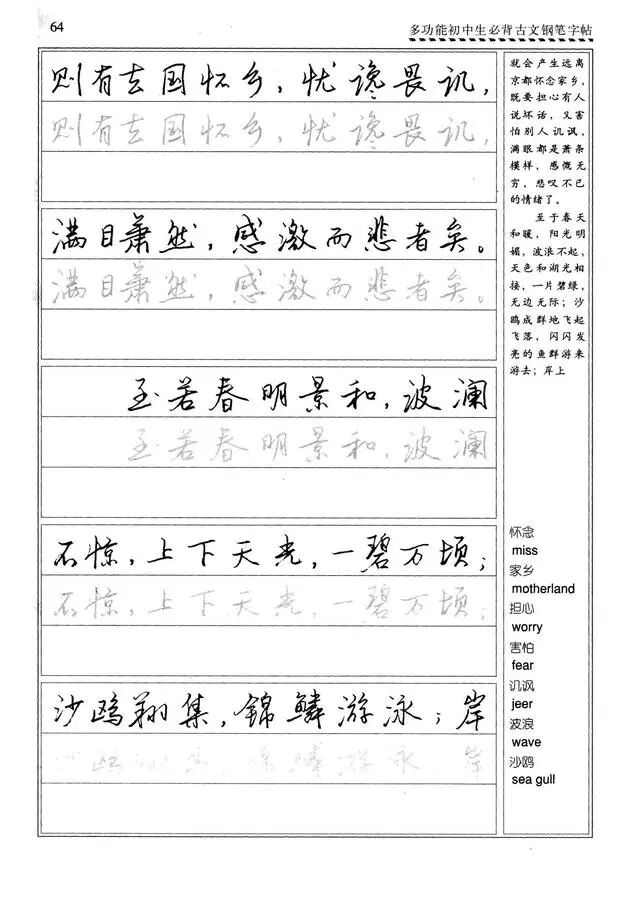 64
多功能初中生必背古文钢笔字帖
则有去国怀乡，忧谗畏讥，
则有去国怀乡，忧谗畏讥，
满目萧然，感激而悲者矣。
满目萧然，感激而悲者矣。
至若春明景和，波澜
至若春明景和，波澜
不惊，上下天光，一碧万顷；
不惊，上下天光，一碧万顷；
沙鸥翔集，锦鳞游泳；岸
沙鸥翔集，锦鳞游泳；岸
就会产生远离
京都怀念家乡，
既要担心有人
说坏话，又害
怕别人讥讽，
满眼都是萧条
模样，感慨无
穷，悲叹不已
的情绪了。
至于春天
和暖，阳光明
媚，波浪不起，
天色和湖光相
接，一片碧绿，
无边无际；沙
鸥成群地飞起
飞落，闪闪发
亮的鱼群游来
游去；岸上
怀念
miss
家乡
motherland
担心
worry
害怕
fear
讥讽
jeer
波浪
wave
沙鸥
sea gull